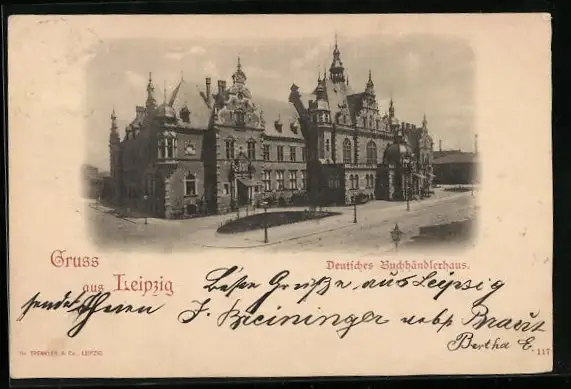 Gruss
aus Leipzig
Deutsches Buchhändlerhaus.
Beste Grüße aus Leipzig
sendet Ihnen J. Kreininger nebst Braut
Bertha E.
Dr. TRENKLER & Co., LEIPZIG.
117